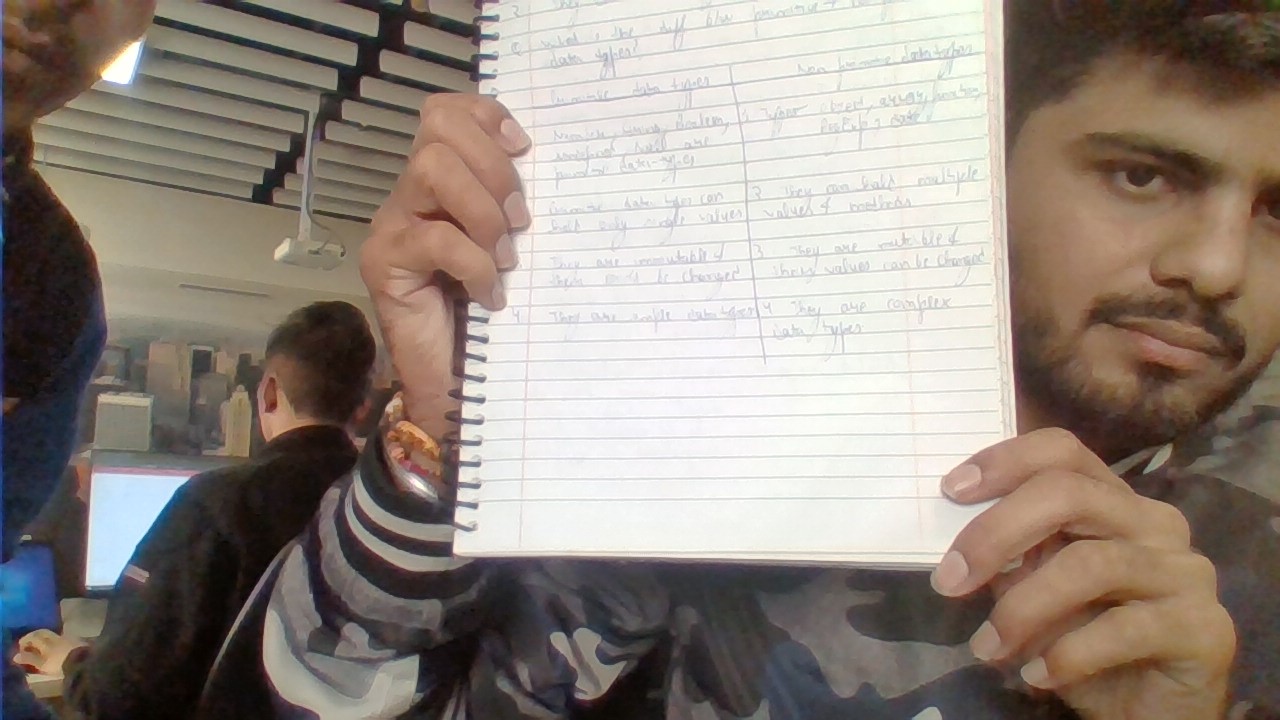 2. They
Q What is the diff b/w primitive &
data types?
Primitive data types
Non primitive data types
Number, string, boolean,
undefined, null are
primitive data-types
1 Types object, array, function,
Primitive data types can
hold only single values
2 They can hold multiple
values & methods
They are immutable &
them be changed
3 They are mutable &
their values can be changed
4 They are simple data types
4 They are complex
data types